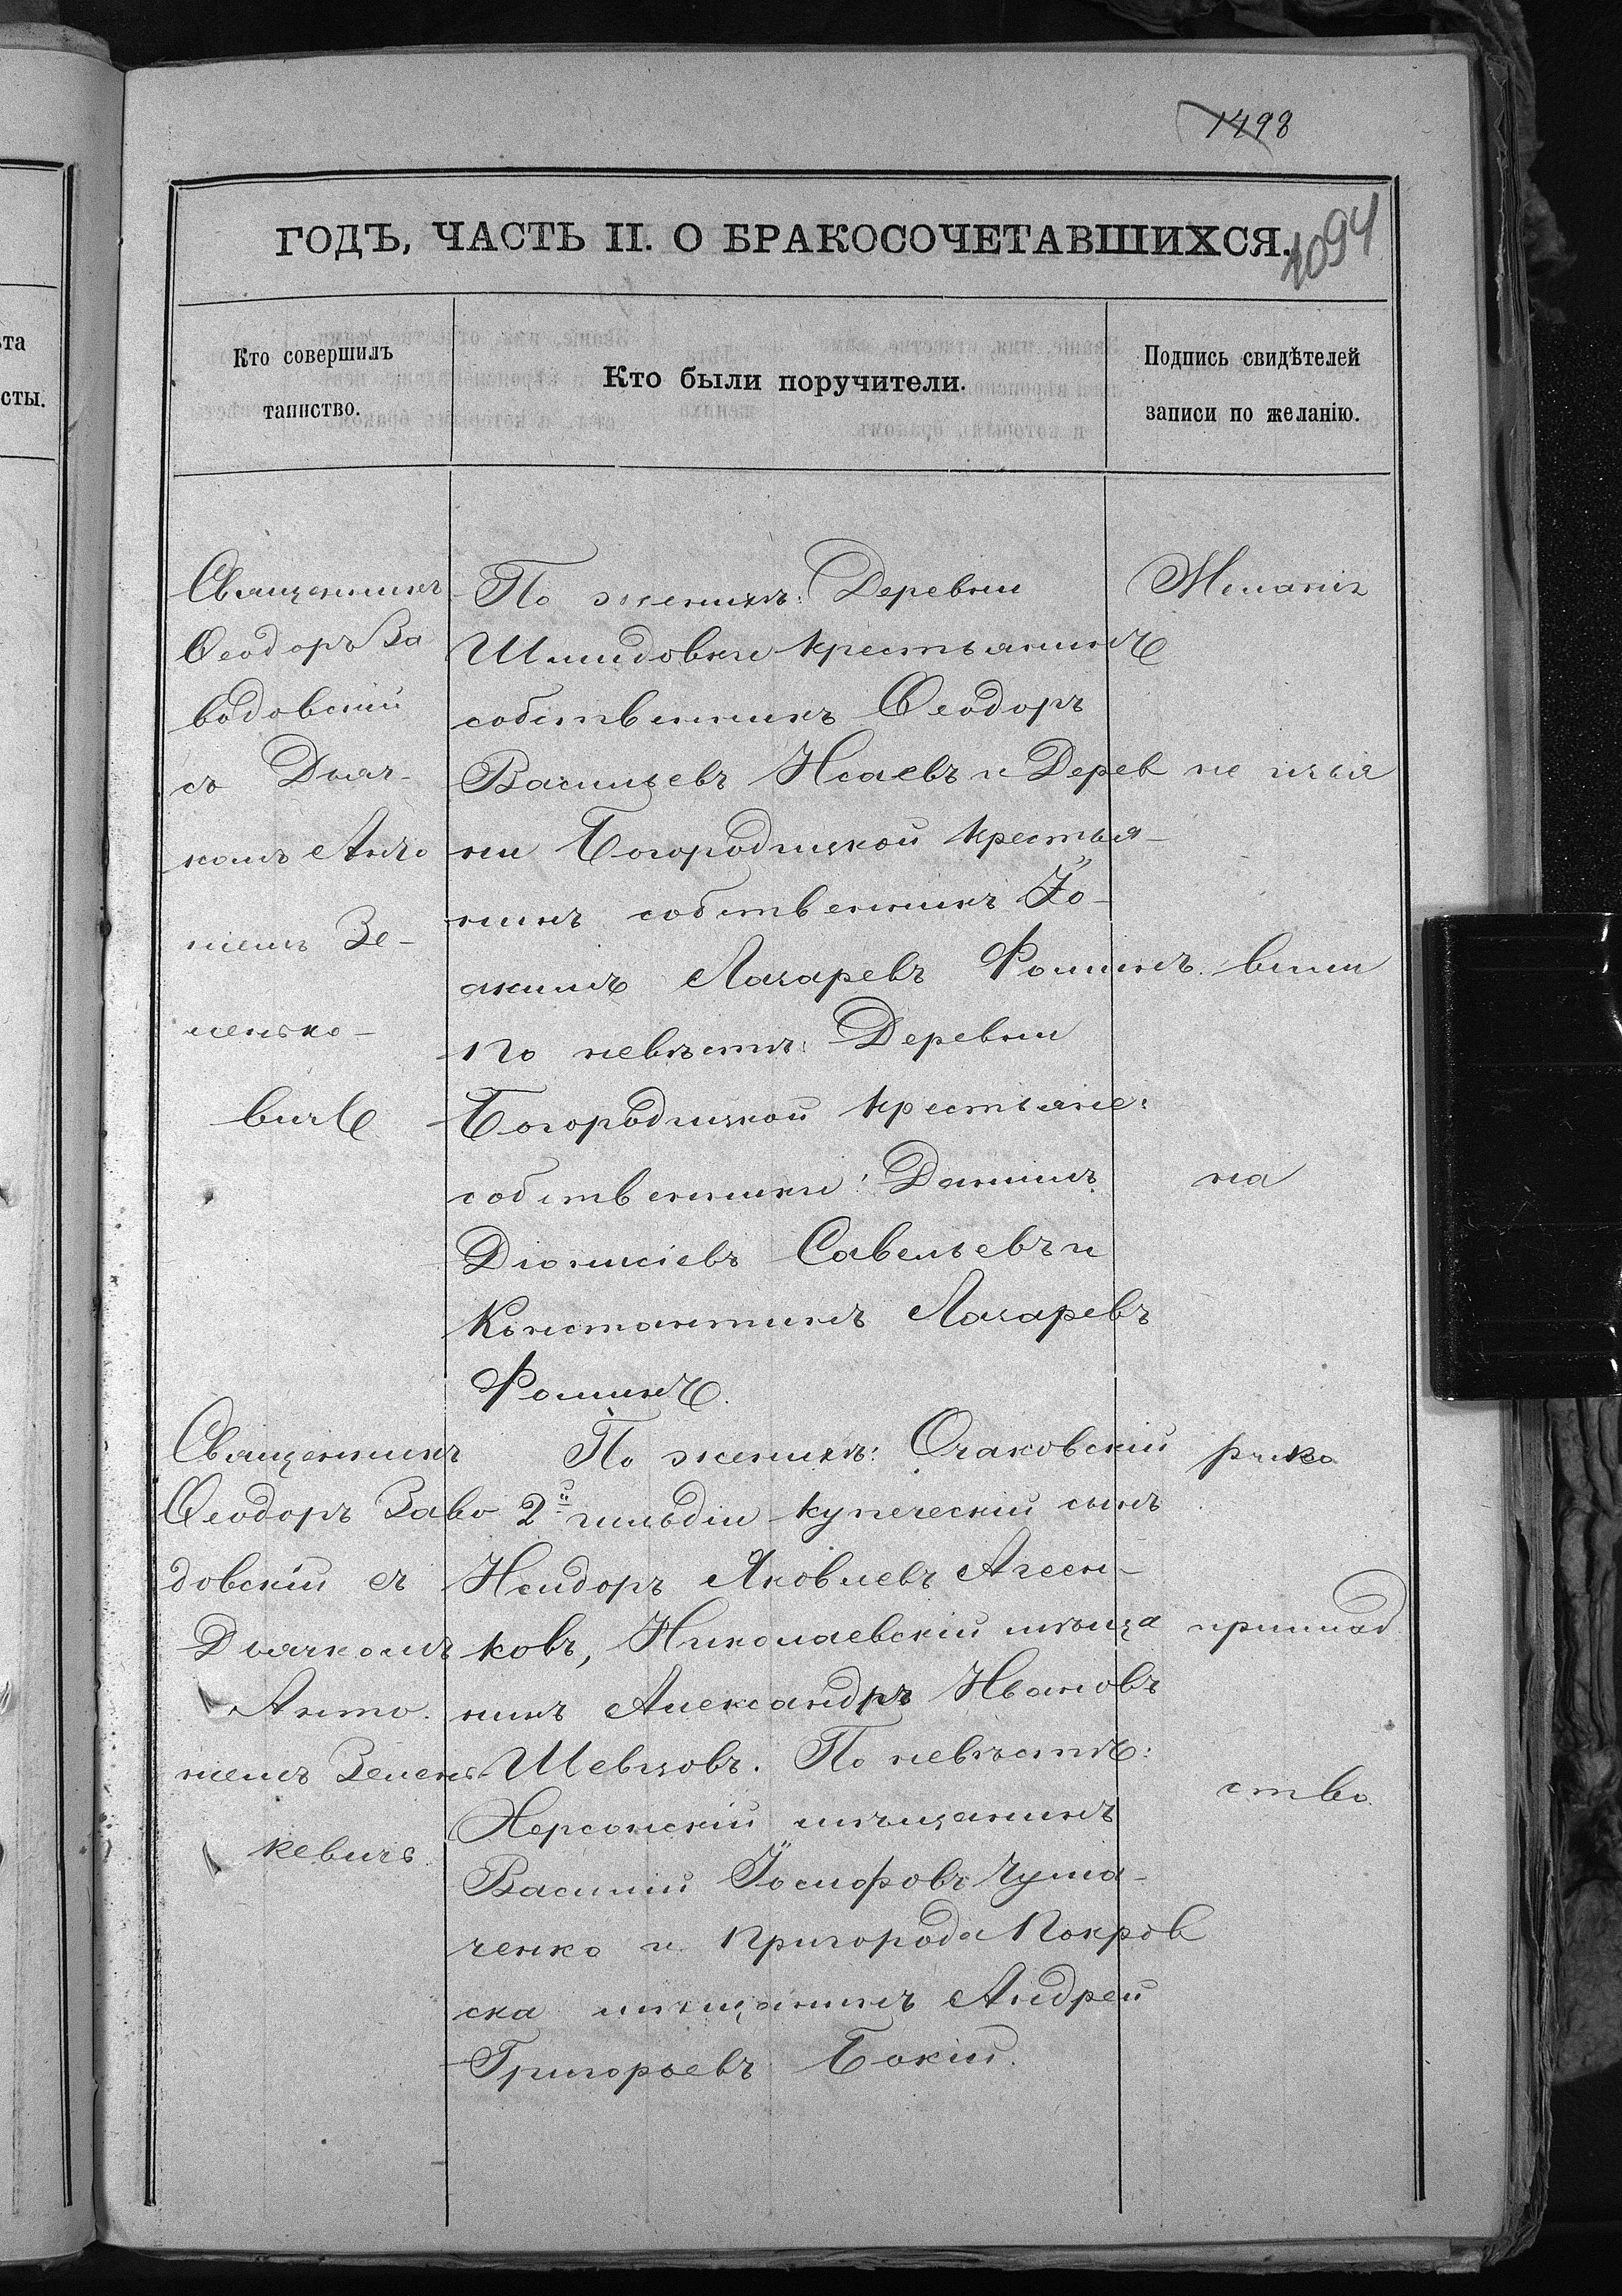 1498
ГОДЪ, ЧАСТЬ II. О БРАКОСОЧЕТАВШИХСЯ.
1094
Кто совершилъ
таинство.
Кто были поручители.
Подпись свидѣтелей
записи по желанію.
ѣта
сты.
Священникъ
Ѳеодоръ За
вадовскій
съ Дьяч-
комъ Анто
ніемъ Зе-
ленько-
вичъ
По женихѣ: Деревни
Шмидовки крестьянинъ
собственникъ Ѳеодоръ
Васильевъ Исаевъ и Дерев
ни Богородицкой крестья-
нинъ собственникъ Іо-
акимъ Лазаревъ Фоминъ.
по невѣстѣ: Деревни
Богородицкой крестьяне:
собственники: Даніилъ
Діонисіевъ Савельевъ и
Константинъ Лазаревъ
Фоминъ.
Священникъ
Ѳеодоръ Заво
довскій съ
Дьячкомъ
Анто.
ніемъ Зелень-
кевичъ
По женихѣ: Очаковскій
2й гильдіи купеческій сынъ
Исидоръ Яковлевъ Агеен-
ковъ, Николаевскій мѣща
нинъ Александръ Ивановъ
Шевцовъ. По невѣстѣ:
Херсонскій мѣщанинъ
Василій Іосифовъ Чума-
ченко и пригорода Покров
ска мѣщанинъ Андрей
Григорьевъ Бокій.
Желанія
не изъя
вили
на
руко
приклад
ство